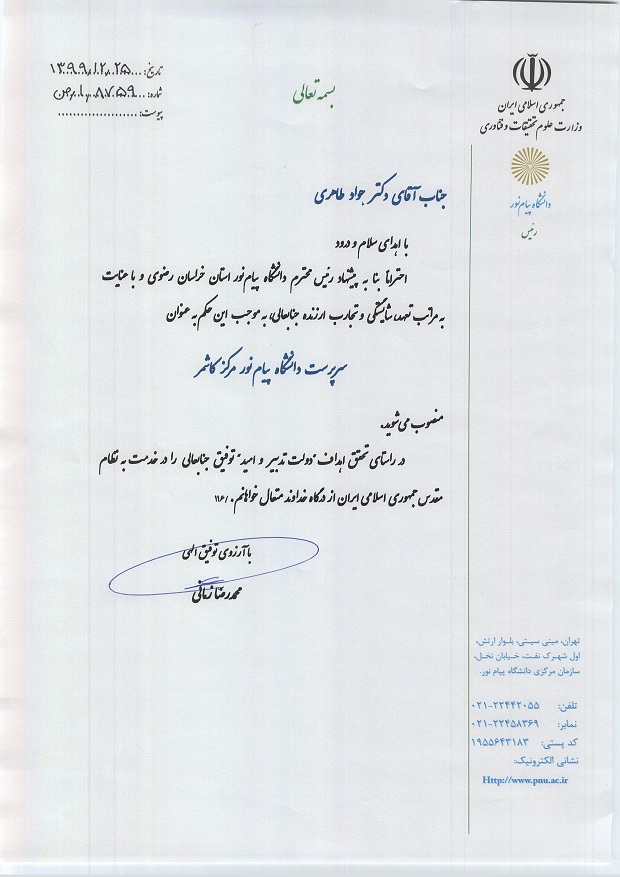 بسمه تعالی
تاریخ: ۱۳۹۹/۰۲/۲۵
شماره:
پیوست:
جمهوری اسلامی ایران
وزارت علوم تحقیقات و فناوری
دانشگاه پیام نور
رئیس
جناب آقای دکتر جواد طاهری
با اهدای سلام و درود
احتراماً بنا به پیشنهاد رئیس محترم دانشگاه پیام نور استان خراسان رضوی و با عنایت
به مراتب تعهد، شایستگی و تجارب ارزنده جنابعالی، به موجب این حکم به عنوان
سرپرست دانشگاه پیام نور مرکز کاشمر
منصوب می‌شوید.
در راستای تحقق اهداف "دولت تدبیر و امید" توفیق جنابعالی را در خدمت به نظام
مقدس جمهوری اسلامی ایران از درگاه خداوند متعال خواهانم. /۱۱۶
با آرزوی توفیق الهی
محمدرضا زمانی
تهران، مینی سیتی، بلوار ارتش،
اول شهرک نفت، خیابان نخل،
سازمان مرکزی دانشگاه پیام نور.
تلفن: ۰۲۱-۲۲۴۴۲۰۵۵
نمابر: ۰۲۱-۲۲۴۵۸۳۶۹
کد پستی: ۱۹۵۵۶۴۳۱۸۳
نشانی الکترونیک:
Http://www.pnu.ac.ir